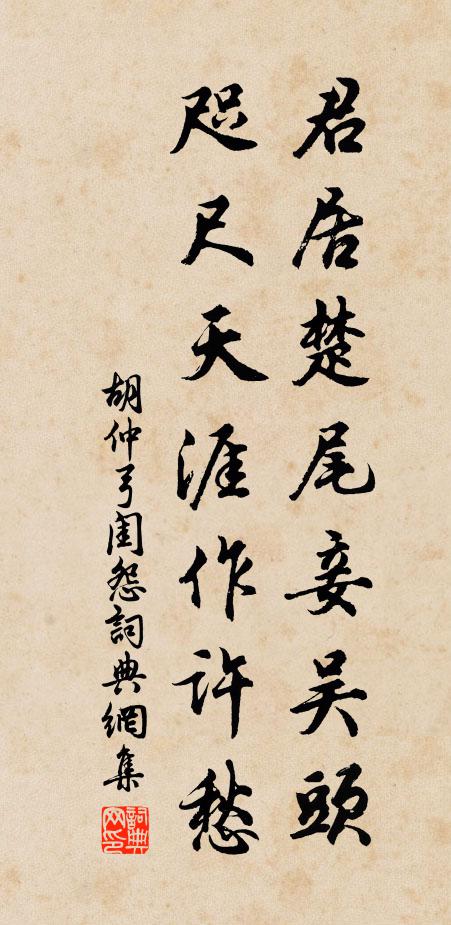 君居楚尾妾吴頭
咫尺天涯作許愁
胡仲弓閨怨詞典網集
詞典网印